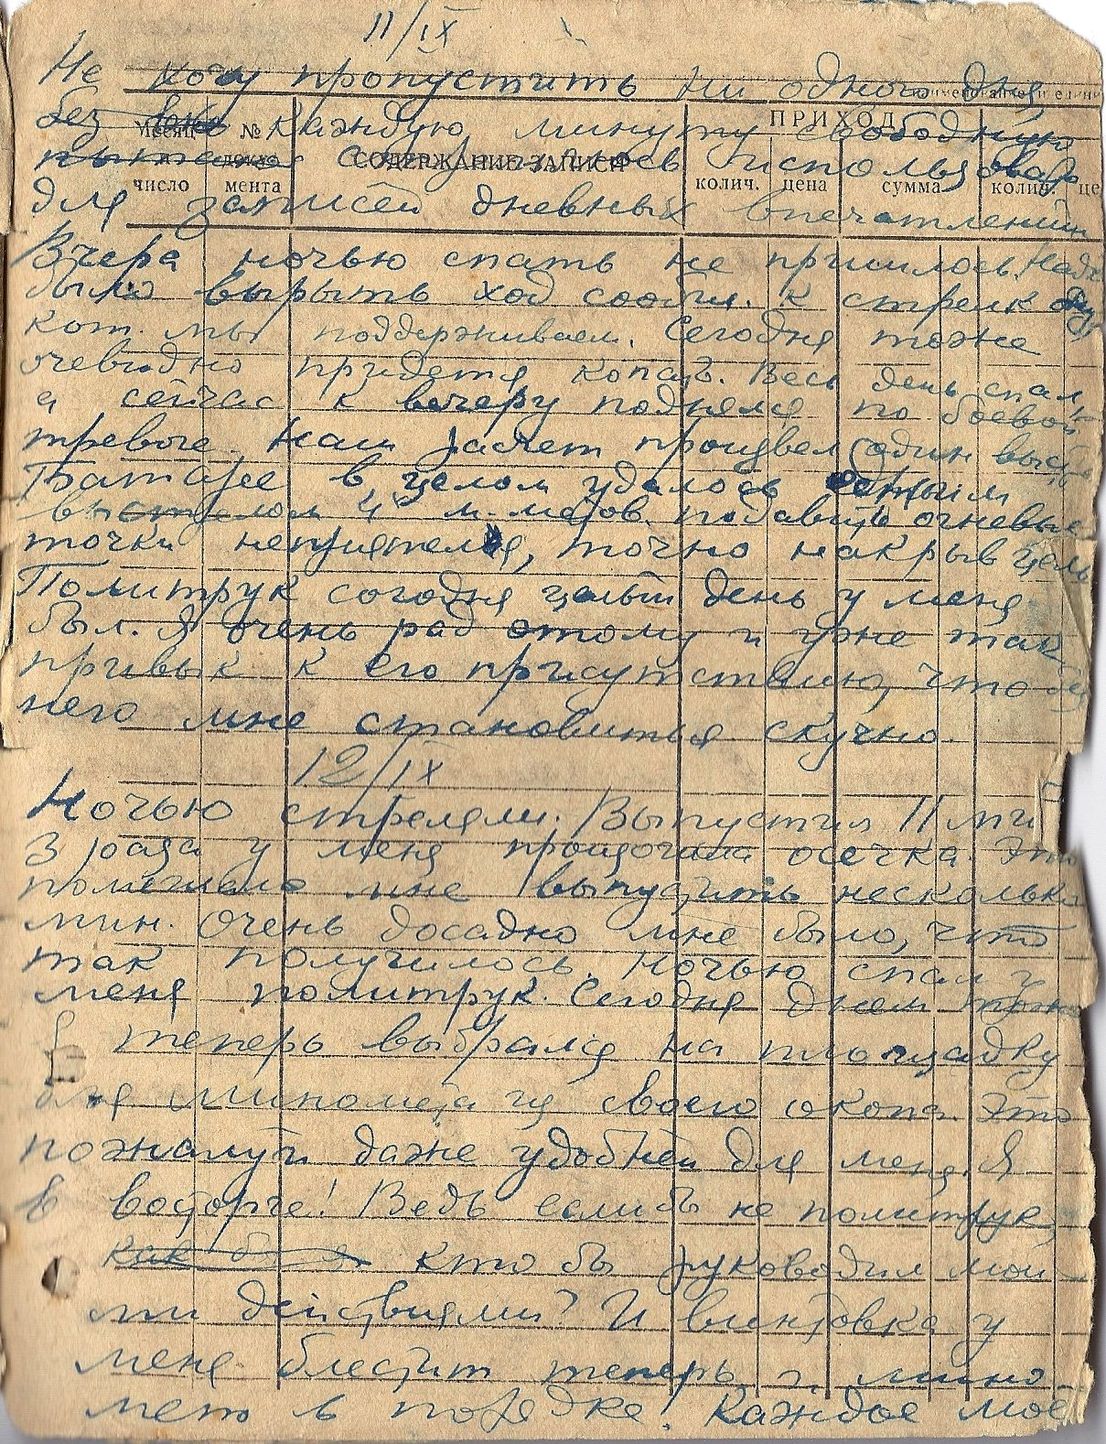 11/IX
Не хочу пропустить ни одного дня
наименование и един
ПРИХОД
без Каждую минуту свободную
Месяц №
СОДЕРЖАНИЕ ЗАПИСИ
пытаюсь использовать
число мента колич. цена сумма колич. це
для записей дневных впечатлений
Вчера ночью спать не пришлось. Надо
было вырыть ход сообщ. к стрелк
кот. мы поддерживаем. Сегодня тоже
очевидно придется копать. Весь день спал,
а сейчас к вечеру поднялся по боевой
тревоге. Наш расчет произвел один выстр
Батарее в целом удалось одним
выстрелом 4х м-метов. подавить огневые
точки неприятеля, точно накрыв цель
Политрук согодня целый день у меня
был. Я очень рад этому и уже так
привык к его присутствию, что без
него мне становиться скучно.
12/IX
Ночью стреляли. Выпустил 11 мин
3 раза у меня произошла осечка. Это
помешало мне выпустить несколько
мин. Очень досадно мне было, что
так получилось. Ночью спал у
меня политрук. Сегодня днем тоже
Я теперь выбрался на площадку
для миномета из своего окопа. Это
пожалуй даже удобней для меня. Я
в восторге! Ведь если бы не политрук,
как б я кто бы руководил мои
ми действиями? И винтовка у
меня блестит теперь и мино
мет в порядке. Каждое мое